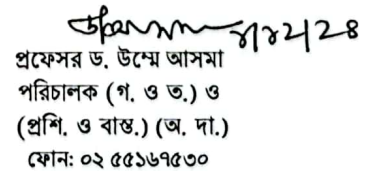 ৪/১২/২৪
প্রফেসর ড. উম্মে আসমা
পরিচালক (গ. ও ত.) ও
(প্রশি. ও বাস্ত.) (অ. দা.)
ফোন: ০২ ৫৫১৬৭৫৩০